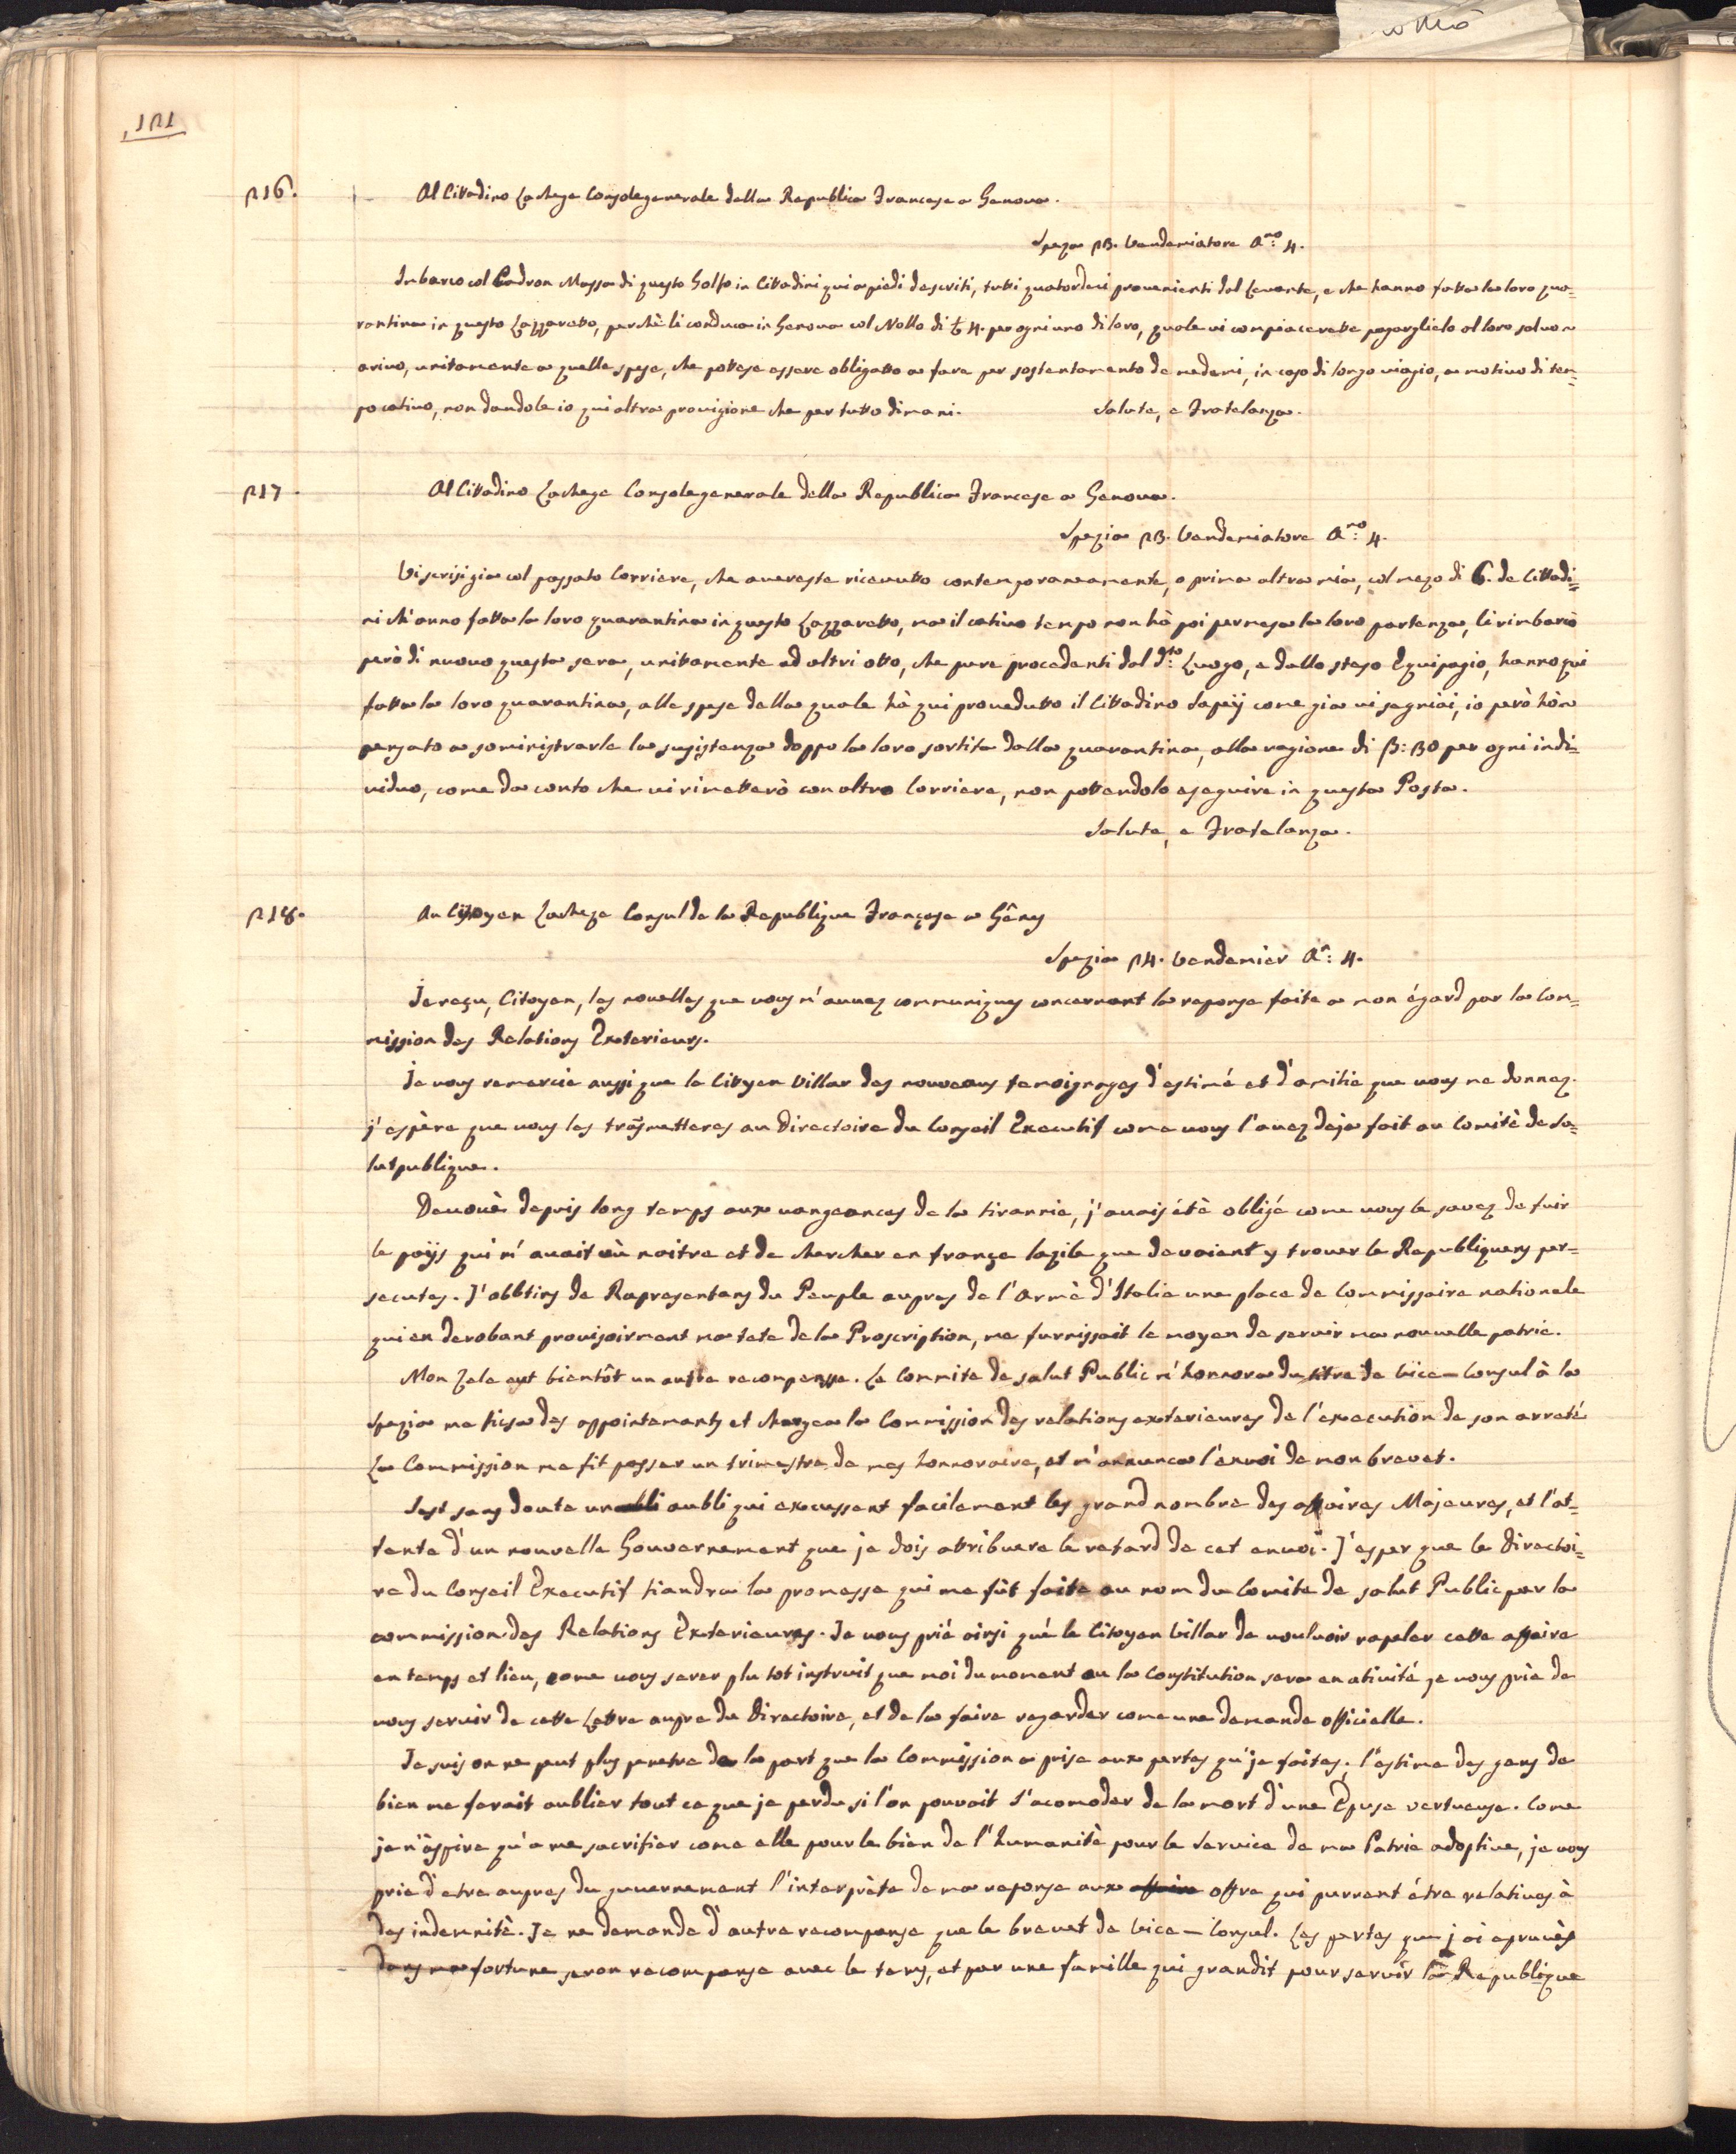 121
216. Al Cittadino Lacheze Console generale della Republica Francese a Genova.
Spezia 23. Vendemiatore A.no 4.
Imbarco col Padron Massa di questo Golfo in Cittadini qui a piedi descriti, tutti quatordeci provenienti dal Levante, e che hanno fatta la loro qua-
rantina in questo Lazzaretto, perchè li conduca in Genova col Nollo di £ 4. per ogni uno di loro, quale vi compiacerette pagarglielo al loro salvo
arivo, unitamente a quelle spese, che potese essere obligatto a fare per sostentamento de medemi, in caso di longo viagio, a motivo di tem=
po cativo, non dandole io qui altra provizione che per tutto dimani. Salute, e Fratelanza.
217. Al Cittadino Lacheze Console generale della Republica Francese a Genova.
Spezia 23. Vendemiatore A.no 4.
Vi scrisi gia col passato Corriere, che avereste ricevutto contemporaneamente, o prima altra mia, col mezo di 6. de Cittadi=
ni ch'anno fatta la loro quarantina in questo Lazzaretto, ma il cativo tempo non hà poi permesa la loro partenza, li rimbarcò
però di nuovo questa sera, unitamente ad altri otto, che pure procedenti dal d.to Luogo, e dallo steso Equipagio, hanno qui
fatta la loro quarantina, alle spese della quale hà qui provedutto il Cittadino Sapeÿ come gia vi segniai, io però hò
pensato a soministrarle la susistenza doppo la loro sortita dalla quarantina, alla ragione di β: 30 per ogni indi=
viduo, come da conto che vi rimetterò con altro Corriere, non pottendolo eseguire in questa Posta.
Salute, e Fratelanza.
218. Au Citoyen Lacheze Consul de la Republique Françese a Gênes
Spezia 24. Vendemier A.n 4.
Je reçu, Citoyen, les nouvelles que vous m'avvez communiques concernant la reponse faite a mon égard par la Com=
mission des Relations Exterieurs.
Je vous remercie aussi que le Citoyen Villar des nouveaus temoignages d'estimé et d'amitie que vous me donnez.
j'espère que vous les trasmetteres au Directoire du Conseil Executif come vous l'avez deja fait au Comitè de Sa=
lut publique.
Devouè depuis long temps aux vangeances de la tirannie, j'avais étè obligé come vous le savez de fuir
le païjs qui m'avait vù naitre et de chercher en françe lazile que devoient y trouver le Republiquens per=
secutes. J'obbtins de Rapresentans du Peuple aupres de l'Armè d'Italie une place de Commissaire nationale
qui en derobant provisoirment ma tete de la Proscription, me furnissait le moyen de servir ma nouvelle patrie.
Mon Zele eut bientôt un autre recompensse. Le Commite de salut Public m'honnora du titre de Vice-Consul à la
Spezia me ficsa des appointemants et chargea la Commission des relations exterieures de l'execution de son arreté
La Commission me fit passer un trimestre de mes honnoraire, et m'annunca l'envoi de mon brevet.
Sest sans doute un oubli qui excussent facilement les grand nombre des affaires Majeures, et l'at=
tente d'un nouvelle Gouvernement que je dois attribuere le retard de cet envoi. J'esper que le Directoi=
re du Conseil Executif tiandra la promesse qui me fùt faite au nom du Comite de salut Public par la
commission des Relations Exterieures. Je vous prié ainsi qué le Citoyen Villar de voulvoir rapeler cette affaire
en temps et lieu, come vous serer plu tot instruit que moi du moment ou la Constitution sera en ativité je vous prie de
vous servir de cette Lettre aupre du Directoire, et de la faire regarder come une demande officielle.
Je suis on ne peut plus penetre de la part que la Commission a prise aux pertes qu'je faites. l'estime des gens de
bien me ferait oublier tout ce que je perdu si l'on pouvait s'acomoder de la mort d'une Epuse vertueuse. Come
je n'aspire qu'a me sacrifier come elle pour le bien de l'humanitè pour le service de ma Patrie adoptive, je vous
prie d'etre aupres du guvernement l'interprète de ma reponse aux offre qui purrent étre relatives à
des indemnitè. Je ne demande d'autre recompense que le brevet de Vice-Consul. Les pertes que j'ai epruvès
dans ma fortune seron recompense avec le tems, et par une famille qui grandit pour servir la Republique